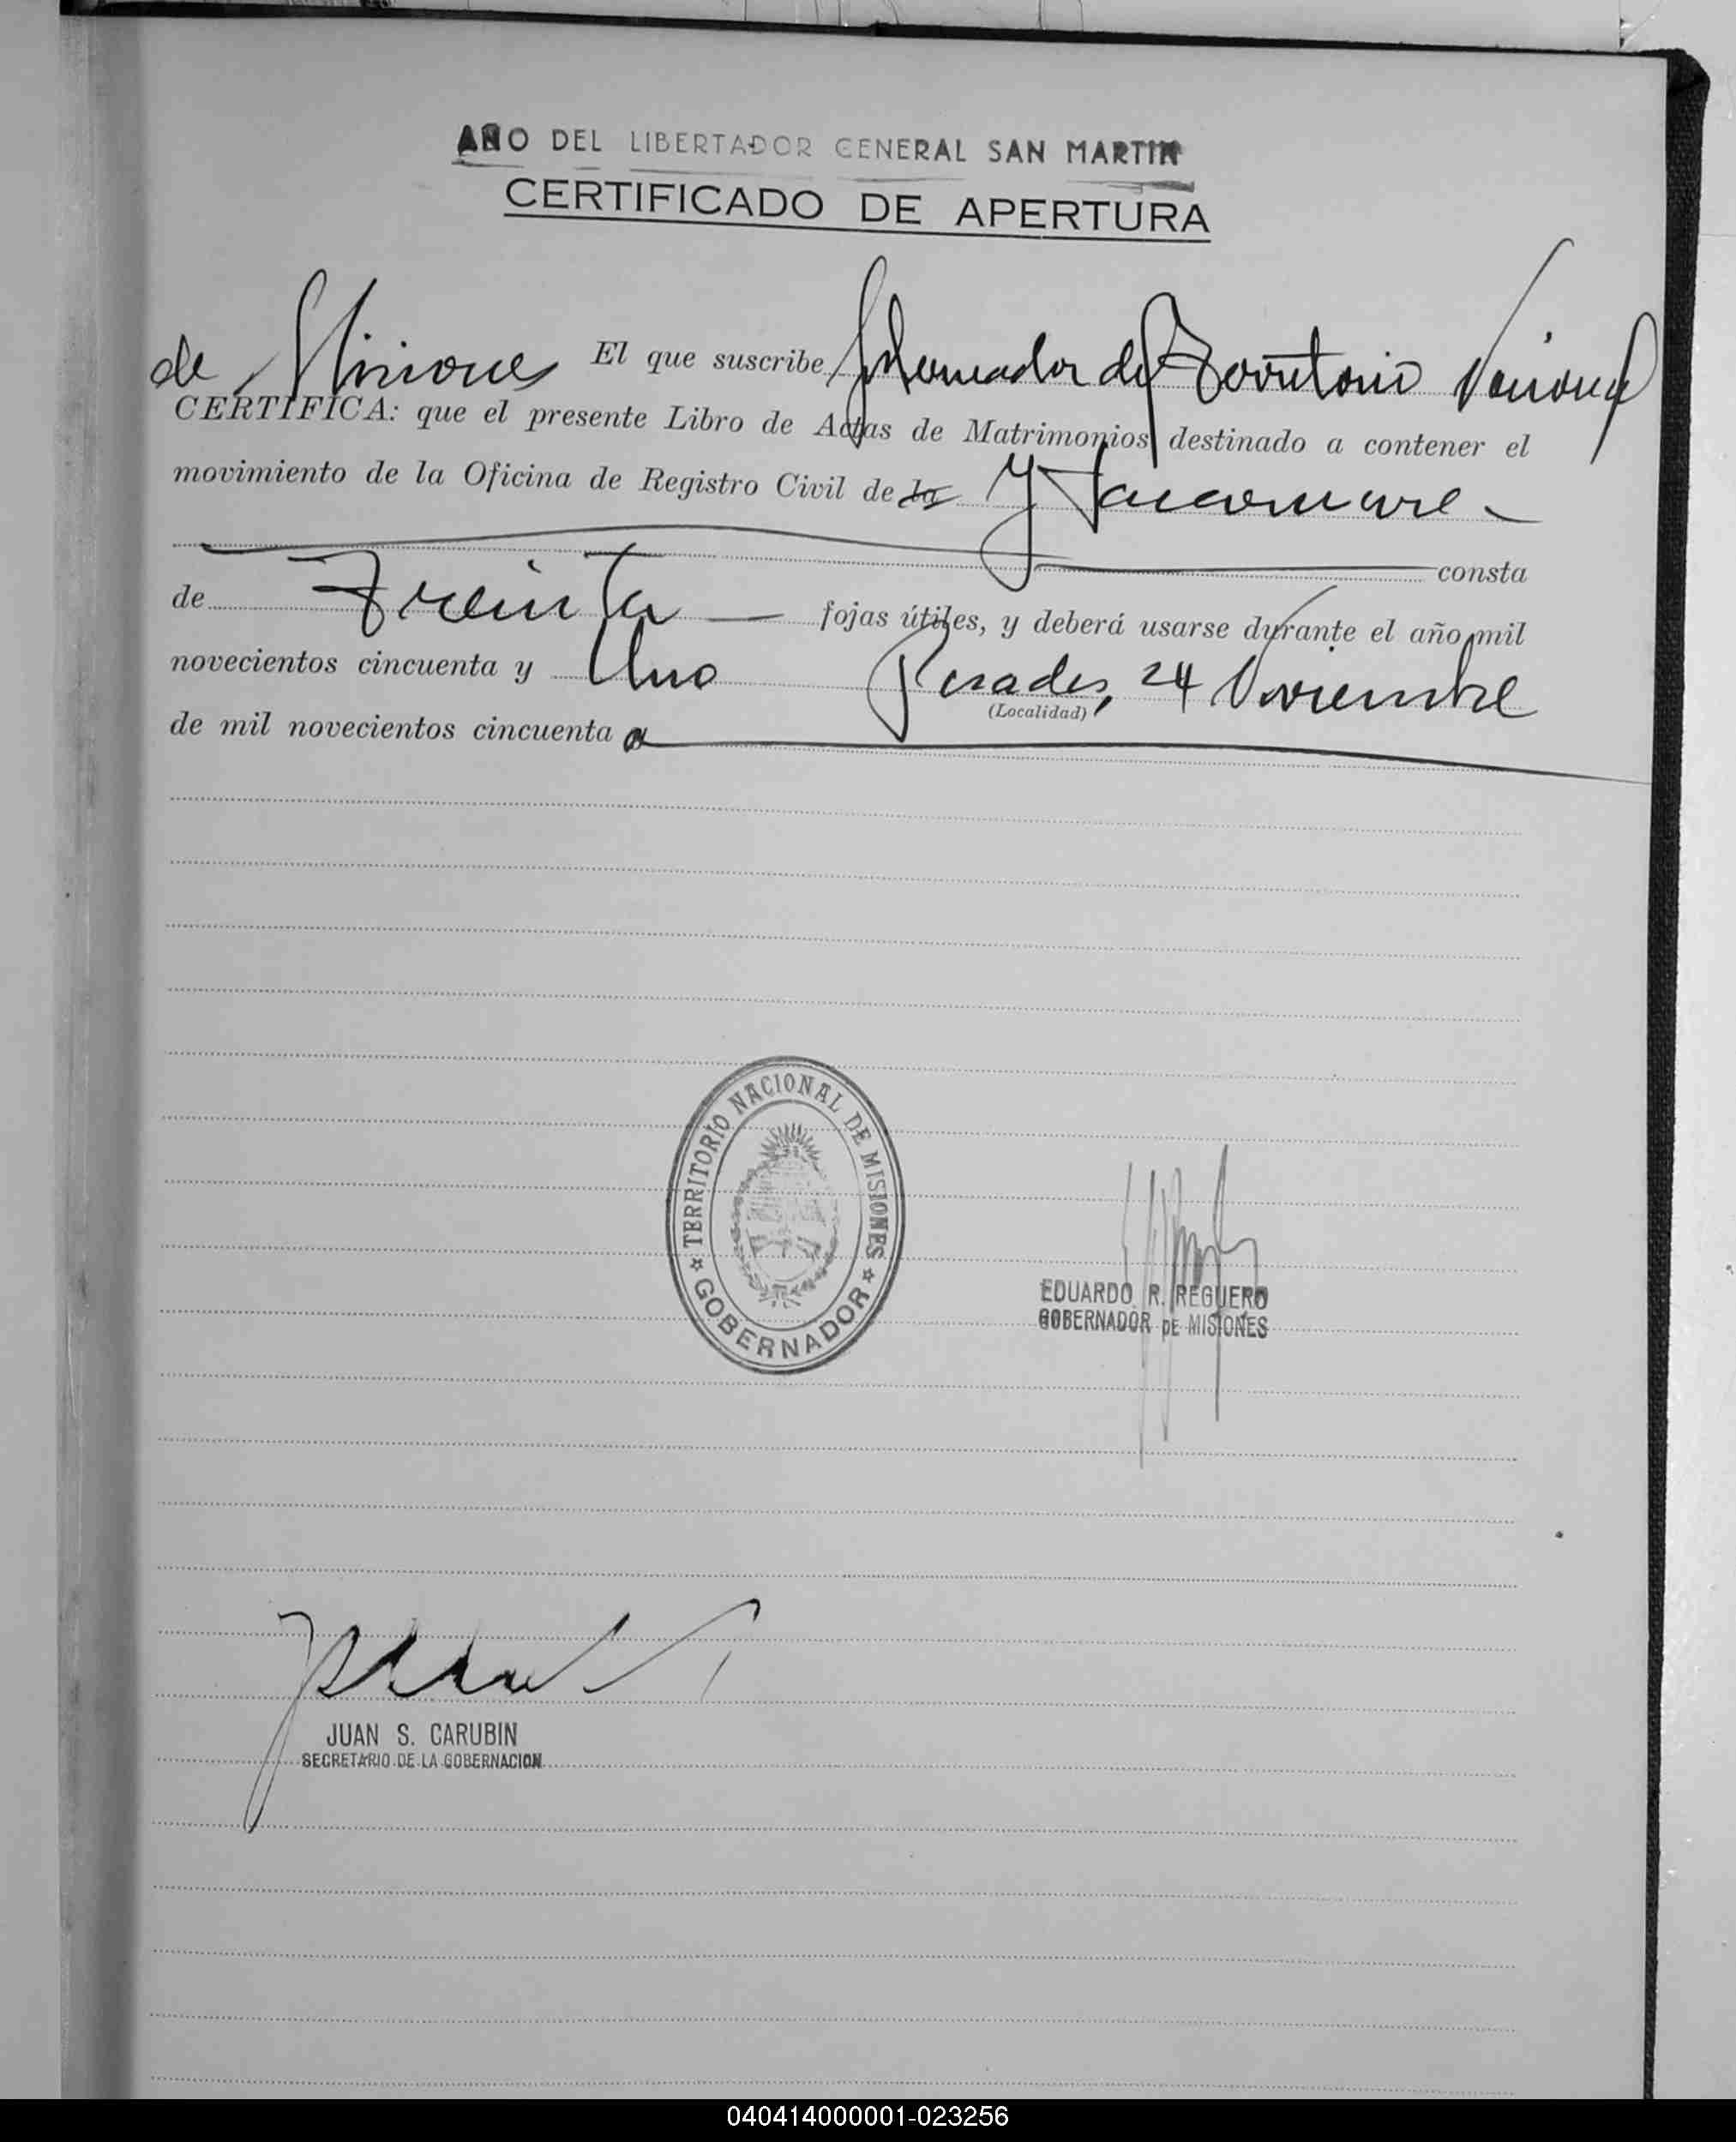 AÑO DEL LIBERTADOR GENERAL SAN MARTIN
CERTIFICADO DE APERTURA
de Misiones El que suscribe Gobernador del Territorio Nacional
CERTIFICA: que el presente Libro de Actas de Matrimonios destinado a contener el
movimiento de la Oficina de Registro Civil de la
consta
de Treinta fojas útiles, y deberá usarse durante el año mil
novecientos cincuenta y Uno Posadas, 24 Noviembre
(Localidad)
de mil novecientos cincuenta
TERRITORIO NACIONAL DE MISIONES
GOBERNADOR
EDUARDO R. REGUERO
GOBERNADOR DE MISIONES
JUAN S. CARUBIN
SECRETARIO DE LA GOBERNACION
040414000001-023256